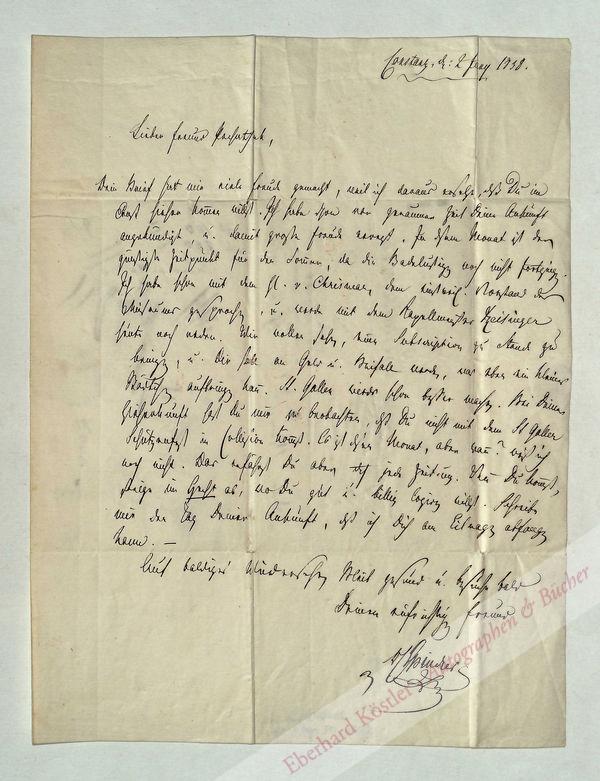 Constanz, d: 2 Juny 1838.
Lieber Freund
Dein Brief hat mir viele Freude gemacht, weil ich daraus ersehe, daß Du im
hieher kommen willst. Ich habe schon vor geraumer Zeit Deine Ankunft
angekündigt, u. damit große Freude erregt. In diesem Monat ist der
günstigste Zeitpunkt für den da die Badelustigen noch nicht
Ich habe schon mit dem H. v. Chrismar, dem Vorstand des
Museums gesprochen, u. werde mit dem Kapellmeister
heute noch reden. Wir wollen sehen, eine Subscription zu Stande zu
bringen, u. Dir soll an Geld u. Beifall werden, was aber ein kleines
Städtchen aufbringen kann. St. Gallen wird's schon besser machen. Bei Deiner
hast Du nur zu beobachten, daß Du nicht mit dem St Galler
Schützenfest in Collision kommst. Es ist diesen Monat, aber wann? weiß ich
noch nicht. Das erfährst Du aber durch jede Zeitung. Wenn Du kommst,
steige im Hecht ab, wo Du gut u. billig logiren wirst. Schreib
mir den Tag Deiner Ankunft, daß ich Dich am Eilwagen
kann. —
Auf baldiges Wiedersehen Bleib gesund u. bald
Deinen aufrichtigen Freund
Spindler
Eberhard Köstler Autographen & Bücher